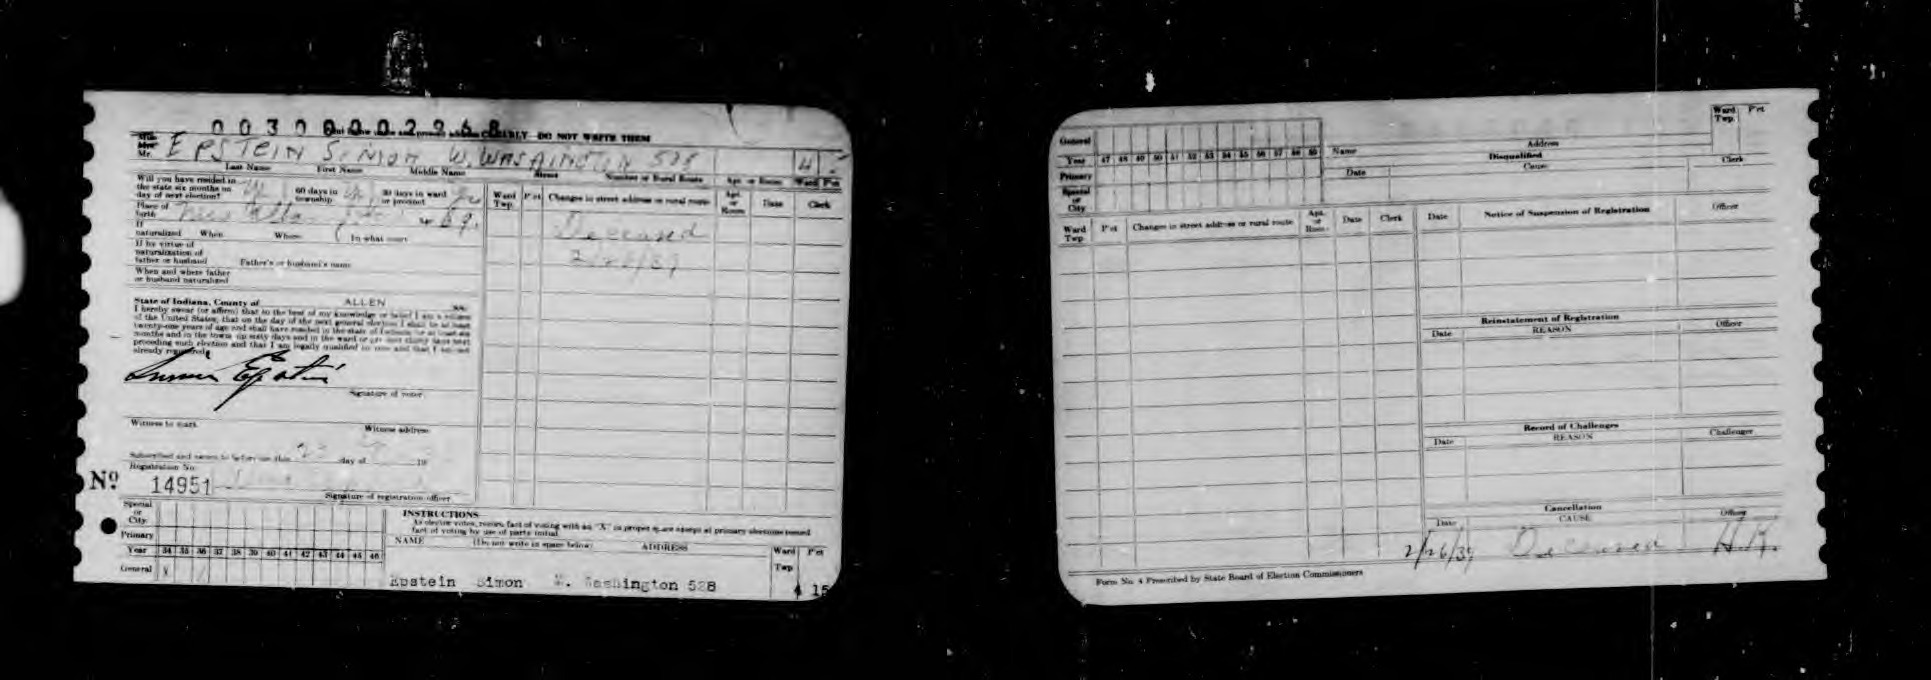 00300002968
CLEARLY DO NOT WRITE THEM
Mr. EPSTEIN SIMON W. WASHINGTON 528 4
Last Name First Name Middle Name Street Number or Rural Route Apt. or Room Ward P'ct
Will you have resided in
the state six months on 60 days in 30 days in ward
day of next election? township or precinct
Place of
birth
If
naturalized When Where In what court
If by virtue of
naturalization of
father or husband Father's or husband's name
When and where father
or husband naturalized
Ward P'ct Changes in street address or rural route Apt. Date Clerk
Twp. or
Room
Deceased
2/26/39
State of Indiana, County of ALLEN ss:
I hereby swear (or affirm) that to the best of my knowledge or belief I am a citizen
of the United States, that on the day of the next general election I shall be at least
twenty-one years of age and shall have resided in the state of Indiana for at least six
months and in the town-ship sixty days and in the ward or precinct thirty days next
preceding such election and that I am legally qualified to vote and that I am not
already registered.
Simon Epstein
Signature of voter
Witness to mark Witness address
Subscribed and sworn to before me this day of 19
Registration No.
No 14951
Signature of registration officer
Special
or
City
Primary
Year 34 35 36 37 38 39 40 41 42 43 44 45 46
General X
INSTRUCTIONS
As elector votes, record fact of voting with an "X" in proper space except at primary elections record
fact of voting by use of party initial.
NAME (Do not write in space below) ADDRESS Ward P'ct
Twp
Epstein Simon W. Washington 528 4 15
General
Year 47 48 49 50 51 52 53 54 55 56 57 58 59
Primary
Special
or
City
Name Address Ward P'ct
Twp.
Disqualified
Date Cause Clerk
Ward P'ct Changes in street address or rural route Apt. Date Clerk
Twp. or
Room
Date Notice of Suspension of Registration Officer
Reinstatement of Registration
Date REASON Officer
Record of Challenges
Date REASON Challenger
Cancellation
Date CAUSE Officer
2/26/39 Deceased H.K.
Form No. 4 Prescribed by State Board of Election Commissioners